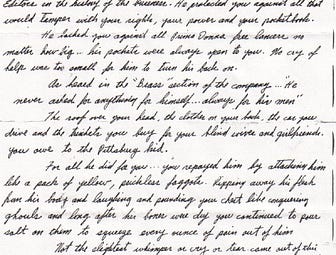 Editors in the history of the business. He protected you against all that
would tamper with your rights, your power and your pocketbook.
He backed you against all Prima Donna free lancers no
matter how big... his pockets were always open to you. No cry of
help was too small for him to turn his back on.
As heard in the "Brass" section of the company... "He
never asked for anything for himself... always for his men"
The roof over your head, the clothes on your back, the car you
drive and the trinkets you buy for your blind wives and girlfriends,
you owe to the Pittsburg kid.
For all he did for you... you repayed him by attacking him
like a pack of yellow, prickless faggots. Ripping away his flesh
from his body and laughing and pounding your chest like conquering
ghouls and long after his bones were dry you continued to pour
salt on them to squeeze every ounce of pain out of him
Not the slightest whimper or cry or tear came out of this